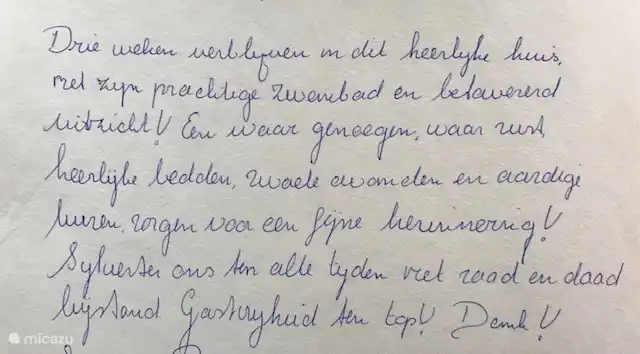 Drie weken verblijven in dit heerlijke huis,
met zijn prachtige zwembad en betoverend
uitzicht! Een waar genoegen, waar rust,
heerlijke bedden, zwoele avonden en aardige
buren, zorgen voor een fijne herinnering!
Sylvester ons ten alle tijden met raad en daad
bijstond Gastvrijheid ten top! Dank!
micazu